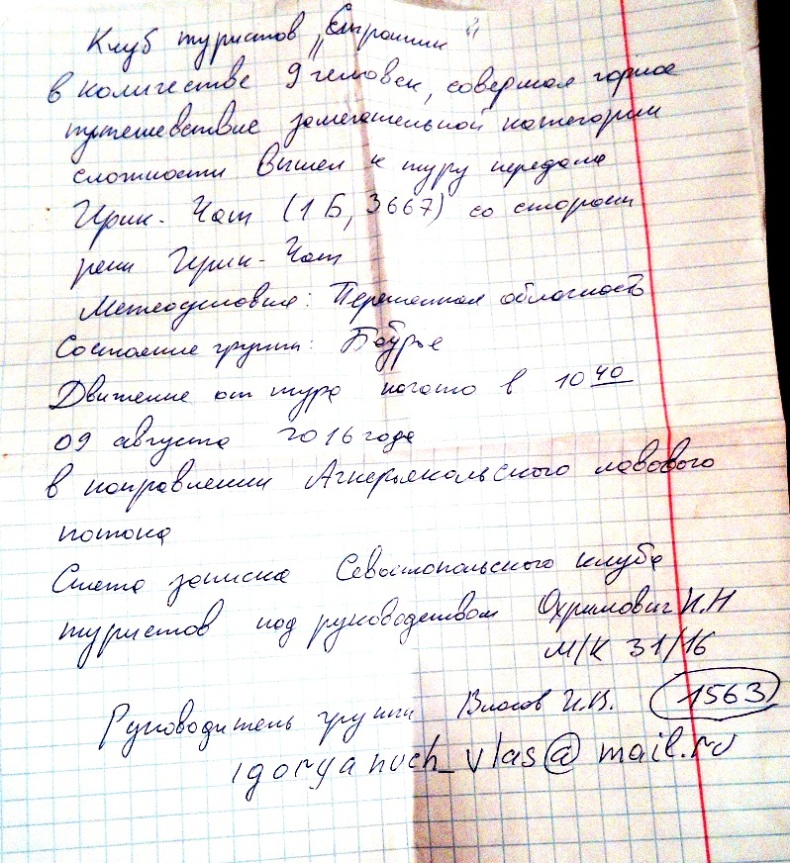 Клуб туристов „Странник"
в количестве 9 человек, совершая горное
путешевствие замечательной категории
сложности вышел к туру перевала
Ирик-Чат (1Б, 3667) со стороны
реки Ирик-Чат
Метеоусловия: Переменная облачность
Состояние группы: Бодрое
Движение от тура начато в 10 40
09 августа 2016 года
в направлении Ачкерьякольского лавового
потока
Снята записка Севастопольского клуба
туристов под руководством Охримович Н.Н
М/К 31/16
Руководитель группы Власов И.В. 1563
igoryanuch_vlas@mail.ru